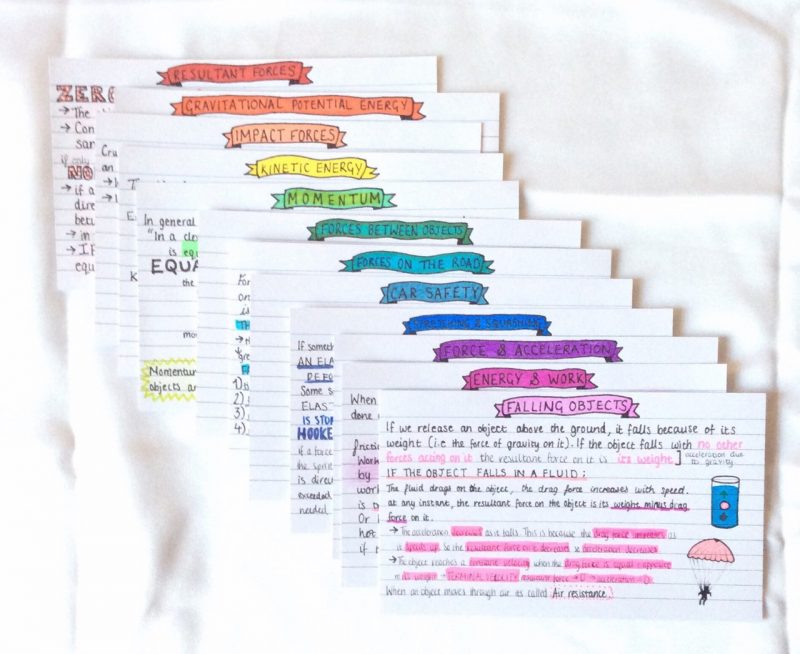 RESULTANT FORCES
ZERO
→ The
→ Con
san
if only
NO
→ if a
dire
betw
→ in
→ IF
equ
GRAVITATIONAL POTENTIAL ENERGY
Cru
an
IMPACT FORCES
KINETIC ENERGY
MOMENTUM
In general
"In a clo
is equ
EQUA
the
mo
Momentum
objects a
FORCES BETWEEN OBJECTS
FORCES ON THE ROAD
For
on
is
Th
gre
1)
2)
3)
4)
CAR SAFETY
STRETCHING & SQUASHING
If someth
AN ELA
DEFO
Some
ELAS
IS STOR
HOOKE
if a force
the spri
is direc
exceeded
needed
FORCE & ACCELERATION
ENERGY & WORK
When
done
frictio
Work
by
work
is
Or
hot
if
FALLING OBJECTS
If we release an object above the ground, it falls because of its
weight (i.e the force of gravity on it). If the object falls with no other
forces acting on it the resultant force on it is its weight] acceleration due
to gravity
IF THE OBJECT FALLS IN A FLUID:
The fluid drags on the object, the drag force increases with speed.
at any instant, the resultant force on the object is its weight minus drag
force on it.
→ The acceleration decreases as it falls. This is because the drag force increases as
it speeds up. So the resultant force on it decreases so acceleration decreases
→ The object reaches a constant velocity when the drag force is equal + opposite
to its weight → TERMINAL VELOCITY resultant force → 0 → acceleration → 0.
When an object moves through air its called Air resistance.